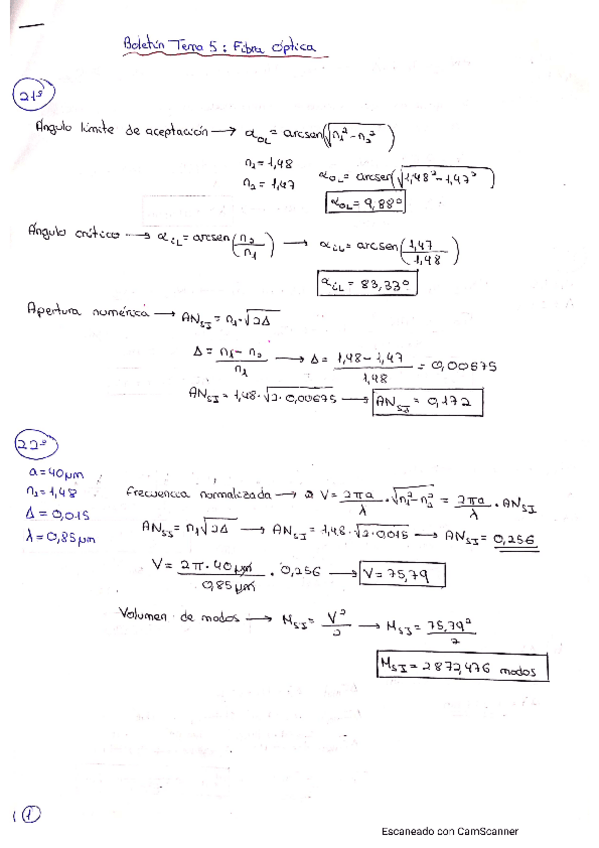 Boletín Tema 5: Fibra Óptica
21º
Ángulo límite de aceptación → α_OL = arcsen(√(n₁² - n₂²))
n₁ = 1,48
n₂ = 1,47 α_OL = arcsen(√(1,48² - 1,47²))
α_OL = 9,88º
Ángulo crítico → α_iL = arcsen(n₂/n₁) → α_iL = arcsen(1,47/1,48)
α_iL = 83,33º
Apertura numérica → AN_SI = n₁·√2Δ
Δ = (n₁ - n₂)/n₁ → Δ = (1,48 - 1,47)/1,48 = 0,00675
AN_SI = 1,48·√2·0,00675 → AN_SI = 0,172
22º
a = 40 μm
n₁ = 1,48
Δ = 0,015
λ = 0,85 μm
Frecuencia normalizada → V = 2πa/λ · √n₁² - n₂² = 2πa/λ · AN_SI
AN_SI = n₁√2Δ → AN_SI = 1,48·√2·0,015 → AN_SI = 0,256
V = 2π·40μm/0,85μm · 0,256 → V = 75,79
Volumen de modos → M_SI = V²/2 → M_SI = 75,79²/2
M_SI = 2872,476 modos
1
Escaneado con CamScanner